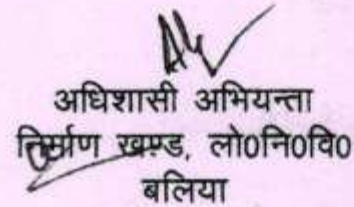 अधिशासी अभियन्ता
निर्माण खण्ड, लो0नि0वि0
बलिया